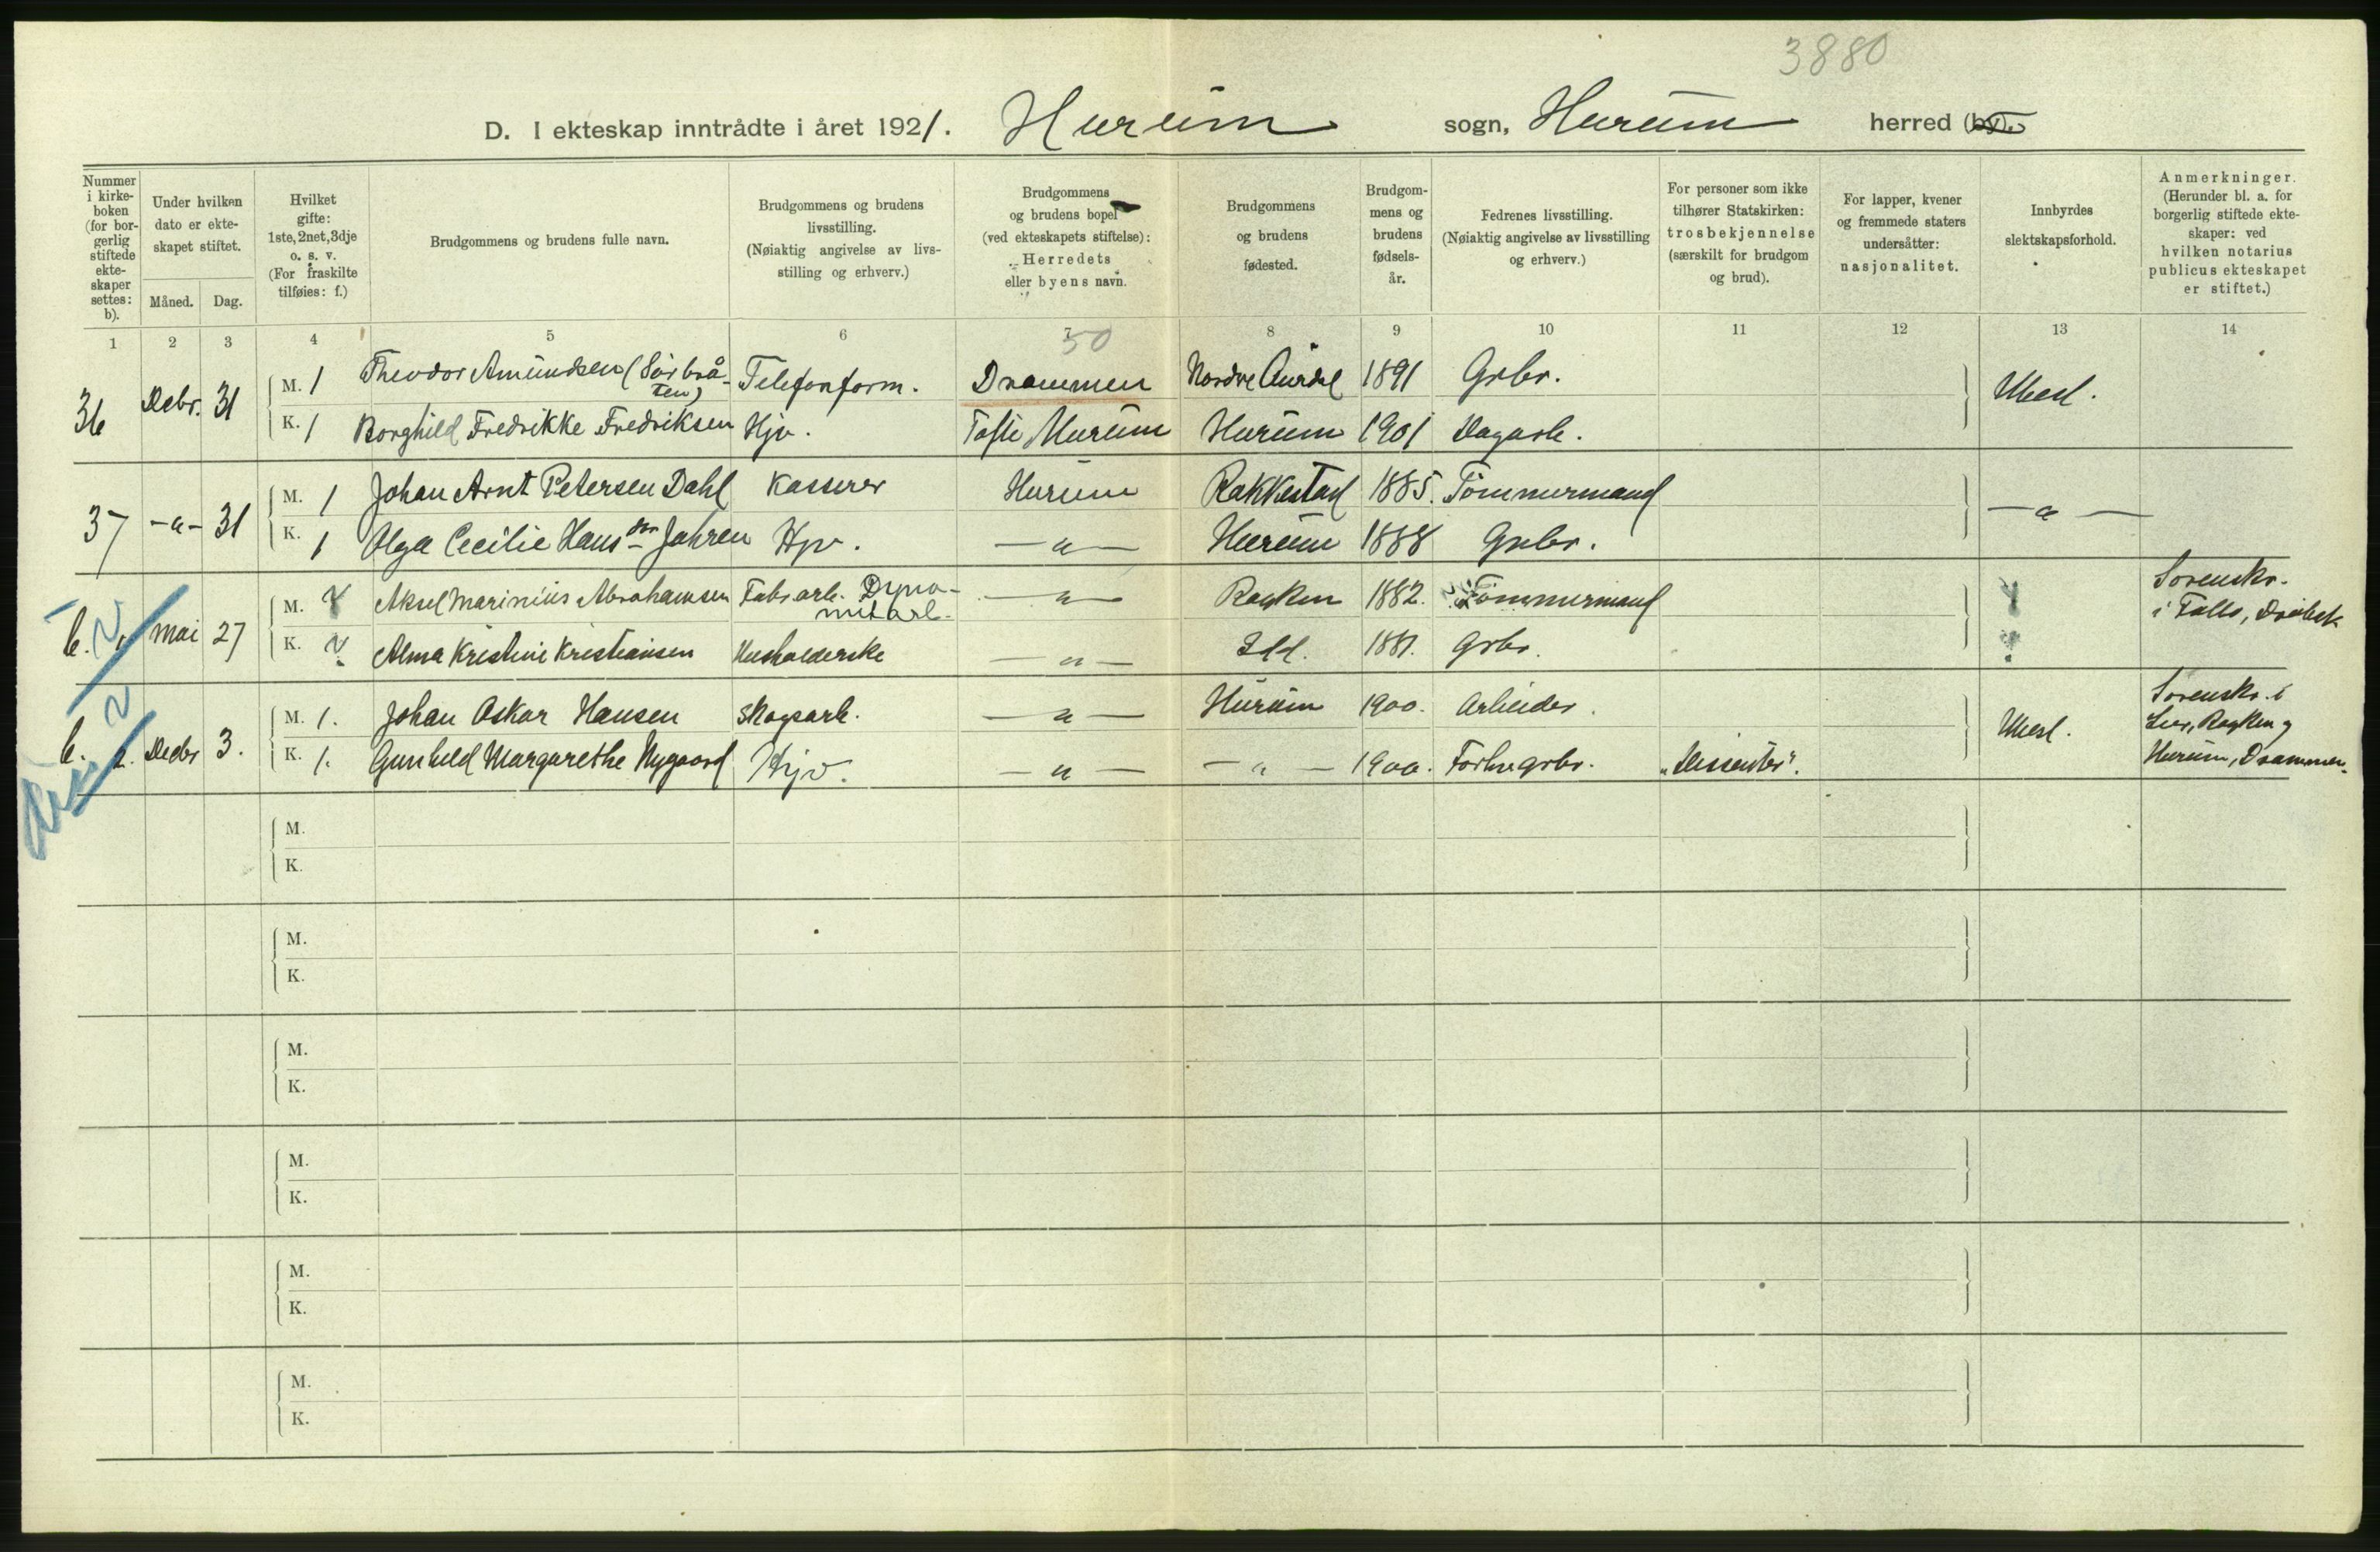 3880
D. I ekteskap inntrådte i året 1921. Hurum sogn, Hurum herred (by).
Nummer i kirke-boken (for bor-gerlig stiftede ekte-skaper settes: b).
Under hvilken dato er ekte-skapet stiftet.
Måned. Dag.
Hvilket gifte: 1ste, 2net, 3dje o. s. v. (For fraskilte tilføies: f.)
Brudgommens og brudens fulle navn.
Brudgommens og brudens livsstilling. (Nøiaktig angivelse av livs-stilling og erhverv.)
Brudgommens og brudens bopel (ved ekteskapets stiftelse): Herredets eller byens navn.
Brudgommens og brudens fødested.
Brudgom-mens og brudens fødsels-år.
Fedrenes livsstilling. (Nøiaktig angivelse av livsstilling og erhverv.)
For personer som ikke tilhører Statskirken: trosbekjennelse (særskilt for brudgom og brud).
For lapper, kvener og fremmede staters undersåtter: nasjonalitet.
Innbyrdes slektskapsforhold.
Anmerkninger. (Herunder bl. a. for borgerlig stiftede ekte-skaper: ved hvilken notarius publicus ekteskapet er stiftet.)
1 2 3 4 5 6 7 8 9 10 11 12 13 14
50
36 Debr. 31 M. 1 Theodor Amundsen (Sørbrå-ten) Telefonform. Drammen Nordre Aurdal 1891 Grbr. Ubesl.
K. 1 Borghild Fredrikke Fredriksen Hjv. Tofte Hurum Hurum 1901 Dagarb.
37 -"- 31 M. 1 Johan Arnt Petersen Dahl Kasserer Hurum Rakkestad 1885. Tömmermand -"-
K. 1 Olga Cecilie Hansdtr Jahren Hjv. -"- Hurum 1888 Grbr.
b. 1. Mai 27 M. Aksel Marinius Abrahamsen Fabr arb. Dyna-mitarb. -"- Røyken 1882. Tömmermand Sorenskr. i Follo, Drøbak
K. Alma Kristine Kristiansen Husholderske -"- Idd. 1881. Grbr.
b. 2. Debr 3. M. 1. Johan Oskar Hansen Skogsarb. -"- Hurum 1900. Arbeider. Ubesl. Sorenskr. i Lier, Røyken og Hurum, Drammen.
K. 1. Gunhild Margarethe Nygaard Hjv. -"- -"- 1900. Forhv. grbr. "Dissenter".
M.
K.
M.
K.
M.
K.
M.
K.
M.
K.
M.
K.